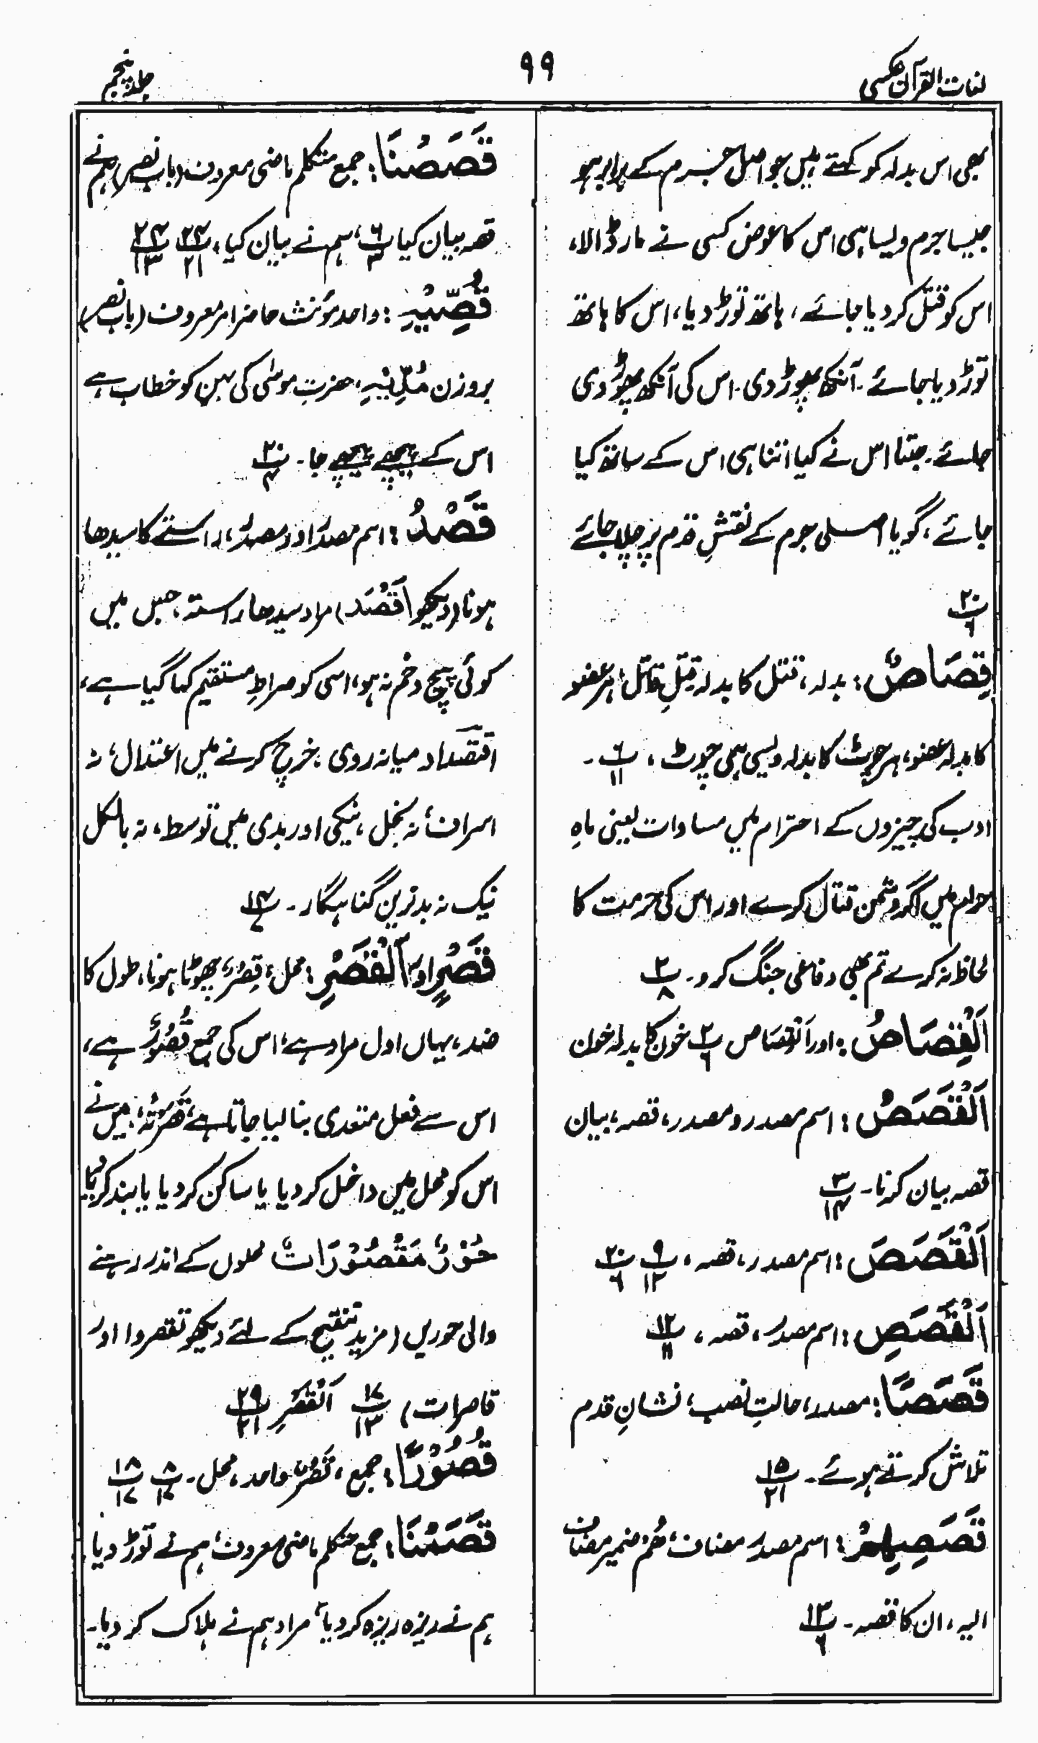 لغات القرآن عکسی
۹۹
جلد پنجم
بھی اس بدلہ کو کہتے ہیں جو اصل جرم کے برابر ہو
جیسا جرم ویسا ہی اس کا عوض کسی نے مار ڈالا،
اس کو قتل کر دیا جائے، ہاتھ توڑ دیا، اس کا ہاتھ
توڑ دیا جائے۔ آنکھ پھوڑ دی۔ اس کی آنکھ پھوڑ دی
جائے۔ جتنا اس نے کیا اتنا ہی اس کے ساتھ کیا
جائے، گویا اصلی جرم کے نقشِ قدم پر چلا جائے
پ۲۰/۶
قِصَاصٌ: بدلہ، قتل کا بدلہ قتلِ قاتل، ہر عضو
کا بدلہ عضو، ہر چوٹ کا بدلہ ویسی ہی چوٹ، پ۶/۱۱ ۔
ادب کی چیزوں کے احترام میں مساوات یعنی ماہِ
حرام میں اگر دشمن قتال کرے اور اس کی حرمت کا
لحاظ نہ کرے تم بھی دفاعی جنگ کرو۔ پ۲/۸
اَلْقِصَاصُ: اور اَلْقِصَاصِ پ۲/۶ خون کا بدلہ خون
اَلْقَصَصُ: اسم مصدر و مصدر، قصہ، بیان
قصہ بیان کرنا۔ پ۳/۱۴
اَلْقَصَصَ: اسم مصدر، قصہ، پ۹/۱۲ پ۲۰/۶
اَلْقَصَصِ: اسم مصدر، قصہ، پ۱۲/۱۱
قَصَصًا: مصدر، حالتِ نصب، نشانِ قدم
تلاش کرتے ہوئے۔ پ۱۵/۲۱
قَصَصِهِمْ: اسم مصدر مضاف، ھُم ضمیر مضاف
الیہ، ان کا قصہ۔ پ۱۳/۶
قَصَصْنَا: جمع متکلم ماضی معروف (باب نصر) ہم نے
قصہ بیان کیا پ۶/۳، ہم نے بیان کیا، پ۲۴/۲۱ پ۲۴/۱۳
قُصِّيْهِ: واحد مؤنث حاضر امر معروف (باب نصر)
بروزن مُدِّيْهِ، حضرت موسیٰ کی بہن کو خطاب ہے
اس کے پیچھے پیچھے جا۔ پ۲۰/۴
قَصْدُ: اسم مصدر اور مصدر، راستے کا سیدھا
ہونا (دیکھو اَقْصَد) مراد سیدھا راستہ، جس میں
کوئی پیچ و خم نہ ہو، اسی کو صراطِ مستقیم کہا گیا ہے،
اقتصاد میانہ روی، خرچ کرنے میں اعتدال، نہ
اسراف، نہ بخل، نیکی اور بدی میں توسط، نہ بالکل
نیک نہ بدترین گناہگار۔ پ۱۴/۷
قَصْرٍ اور اَلْقَصْرِ: محل، قِصَرٌ چھوٹا ہونا، طول کا
ضد، یہاں اول مراد ہے، اس کی جمع قُصُوْرٌ ہے،
اس سے فعل متعدی بنا لیا جاتا ہے، قَصَرْتُهٗ: میں نے
اس کو محل میں داخل کر دیا یا ساکن کر دیا یا بند کر دیا
حُوْرٌ مَقْصُوْرَاتٌ محلوں کے اندر رہنے
والی حوریں (مزید تنقیح کے لئے دیکھو تقصروا اور
قاصرات) پ۱۷/۱۳ اَلْقَصْرِ پ۲۹/۲۱
قُصُوْرًا: جمع، قَصْرٌ واحد، محل۔ پ۸/۱۷ پ۱۸/۱۷
قَصَمْنَا: جمع متکلم ماضی معروف، ہم نے توڑ دیا،
ہم نے ریزہ ریزہ کر دیا، مراد ہم نے ہلاک کر دیا۔